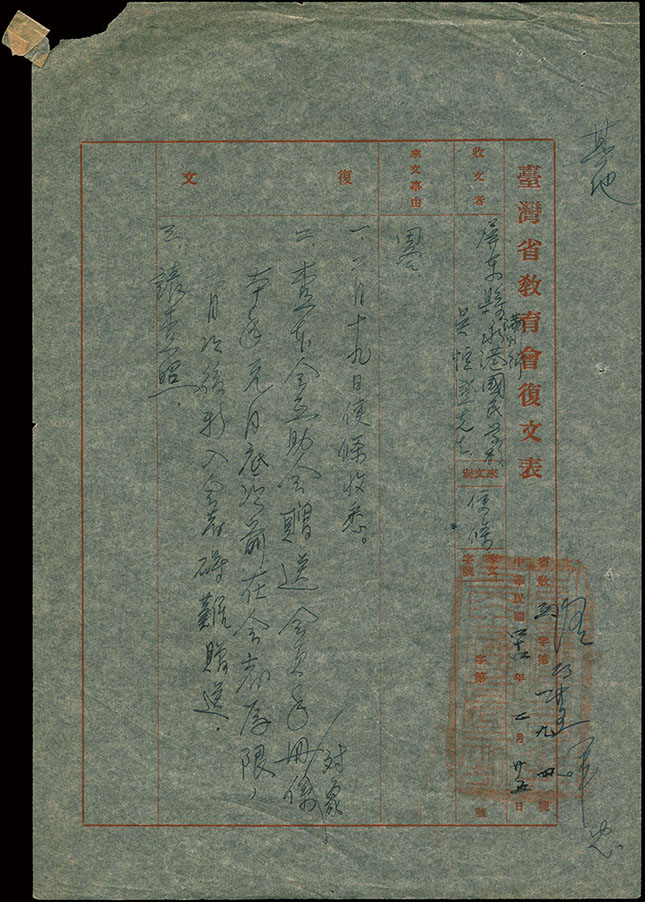 其他
臺灣省教育會復文表
省教 字第一九四 號
中華民國 年 月廿五日
收文者
屏東縣滿州鄉永港國民學校
吳恒 先生
來文別
便條
來文字號
字第 號
來文事由
復文
一、二月十九日便條收悉。
二、查本會互助會贈送會員手冊對象係
本年元月底以前在會者為限，
月以後新入會者礙難贈送。
三、請查照